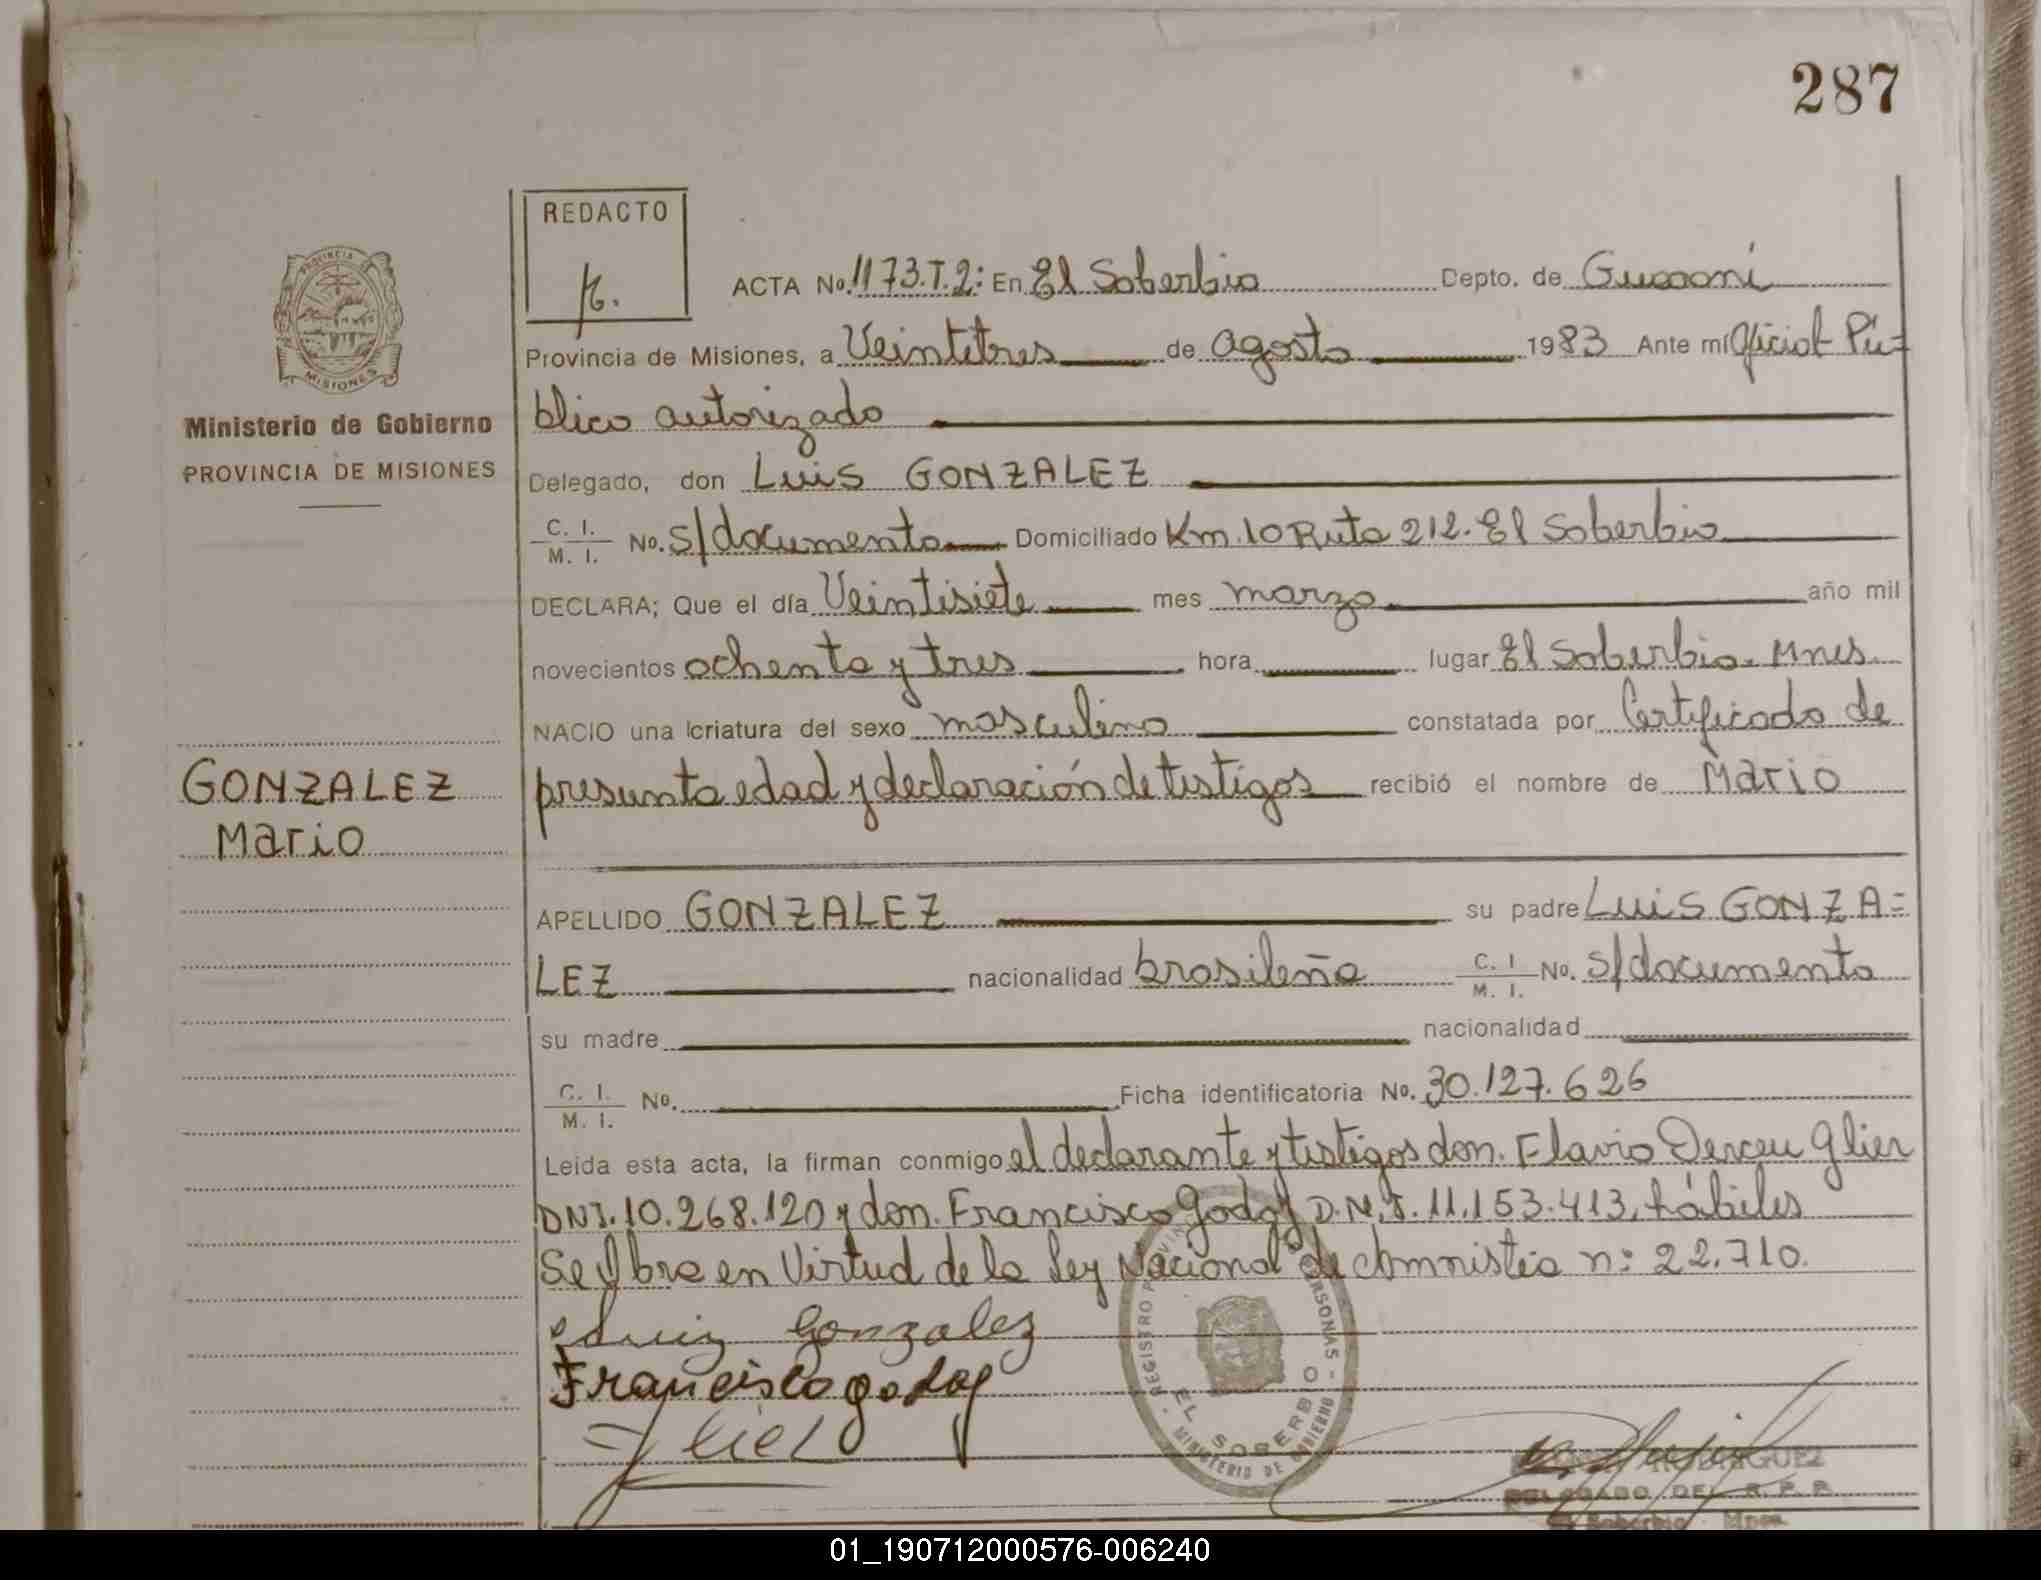 287
REDACTO
PROVINCIA DE
MISIONES
Ministerio de Gobierno
PROVINCIA DE MISIONES
GONZALEZ
Mario
ACTA No. 1173.T.2: En El Soberbio Depto. de Guaraní
Provincia de Misiones, a Veintitres de agosto 1983 Ante mi Oficial Pú=
blico autorizado
Delegado, don Luis GONZALEZ
C. I. / M. I. No. s/documento Domiciliado Km. 10 Ruta 212. El Soberbio
DECLARA; Que el día Veintisiete mes marzo año mil
novecientos ochenta y tres hora lugar El Soberbio. Mnes.
NACIO una criatura del sexo masculino constatada por Certificado de
presunta edad y declaración de testigos recibió el nombre de Mario
APELLIDO GONZALEZ su padre Luis GONZA=
LEZ nacionalidad brasileña C. I / M. I. No. s/documento
su madre nacionalidad
C. I. / M. I. No. Ficha identificatoria No. 30.127.626
Leida esta acta, la firman conmigo el declarante y testigos don. Flavio Derceu Glier
DNI. 10.268.120 y don. Francisco Godoy D.N.I. 11.153.413, hábiles
Se Obra en Virtud de la Ley Nacional de Amnistia n: 22.710.
Luiz Gonzalez
Francisco godoy
REGISTRO PROVIN PERSONAS
EL SOBERBIO
MINISTERIO DE GOBIERNO
RODRIGUEZ
DELEGADO DEL R. P. P.
El Soberbio Mnes.
01_190712000576-006240